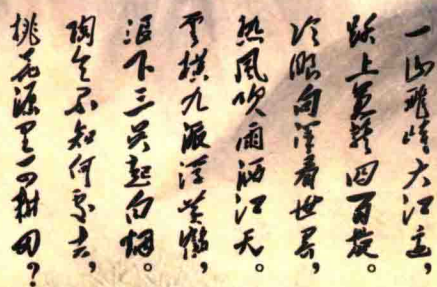 一山飞峙大江边，
跃上葱茏四百旋。
冷眼向洋看世界，
热风吹雨洒江天。
云横九派浮黄鹤，
浪下三吴起白烟。
陶令不知何处去，
桃花源里可耕田？